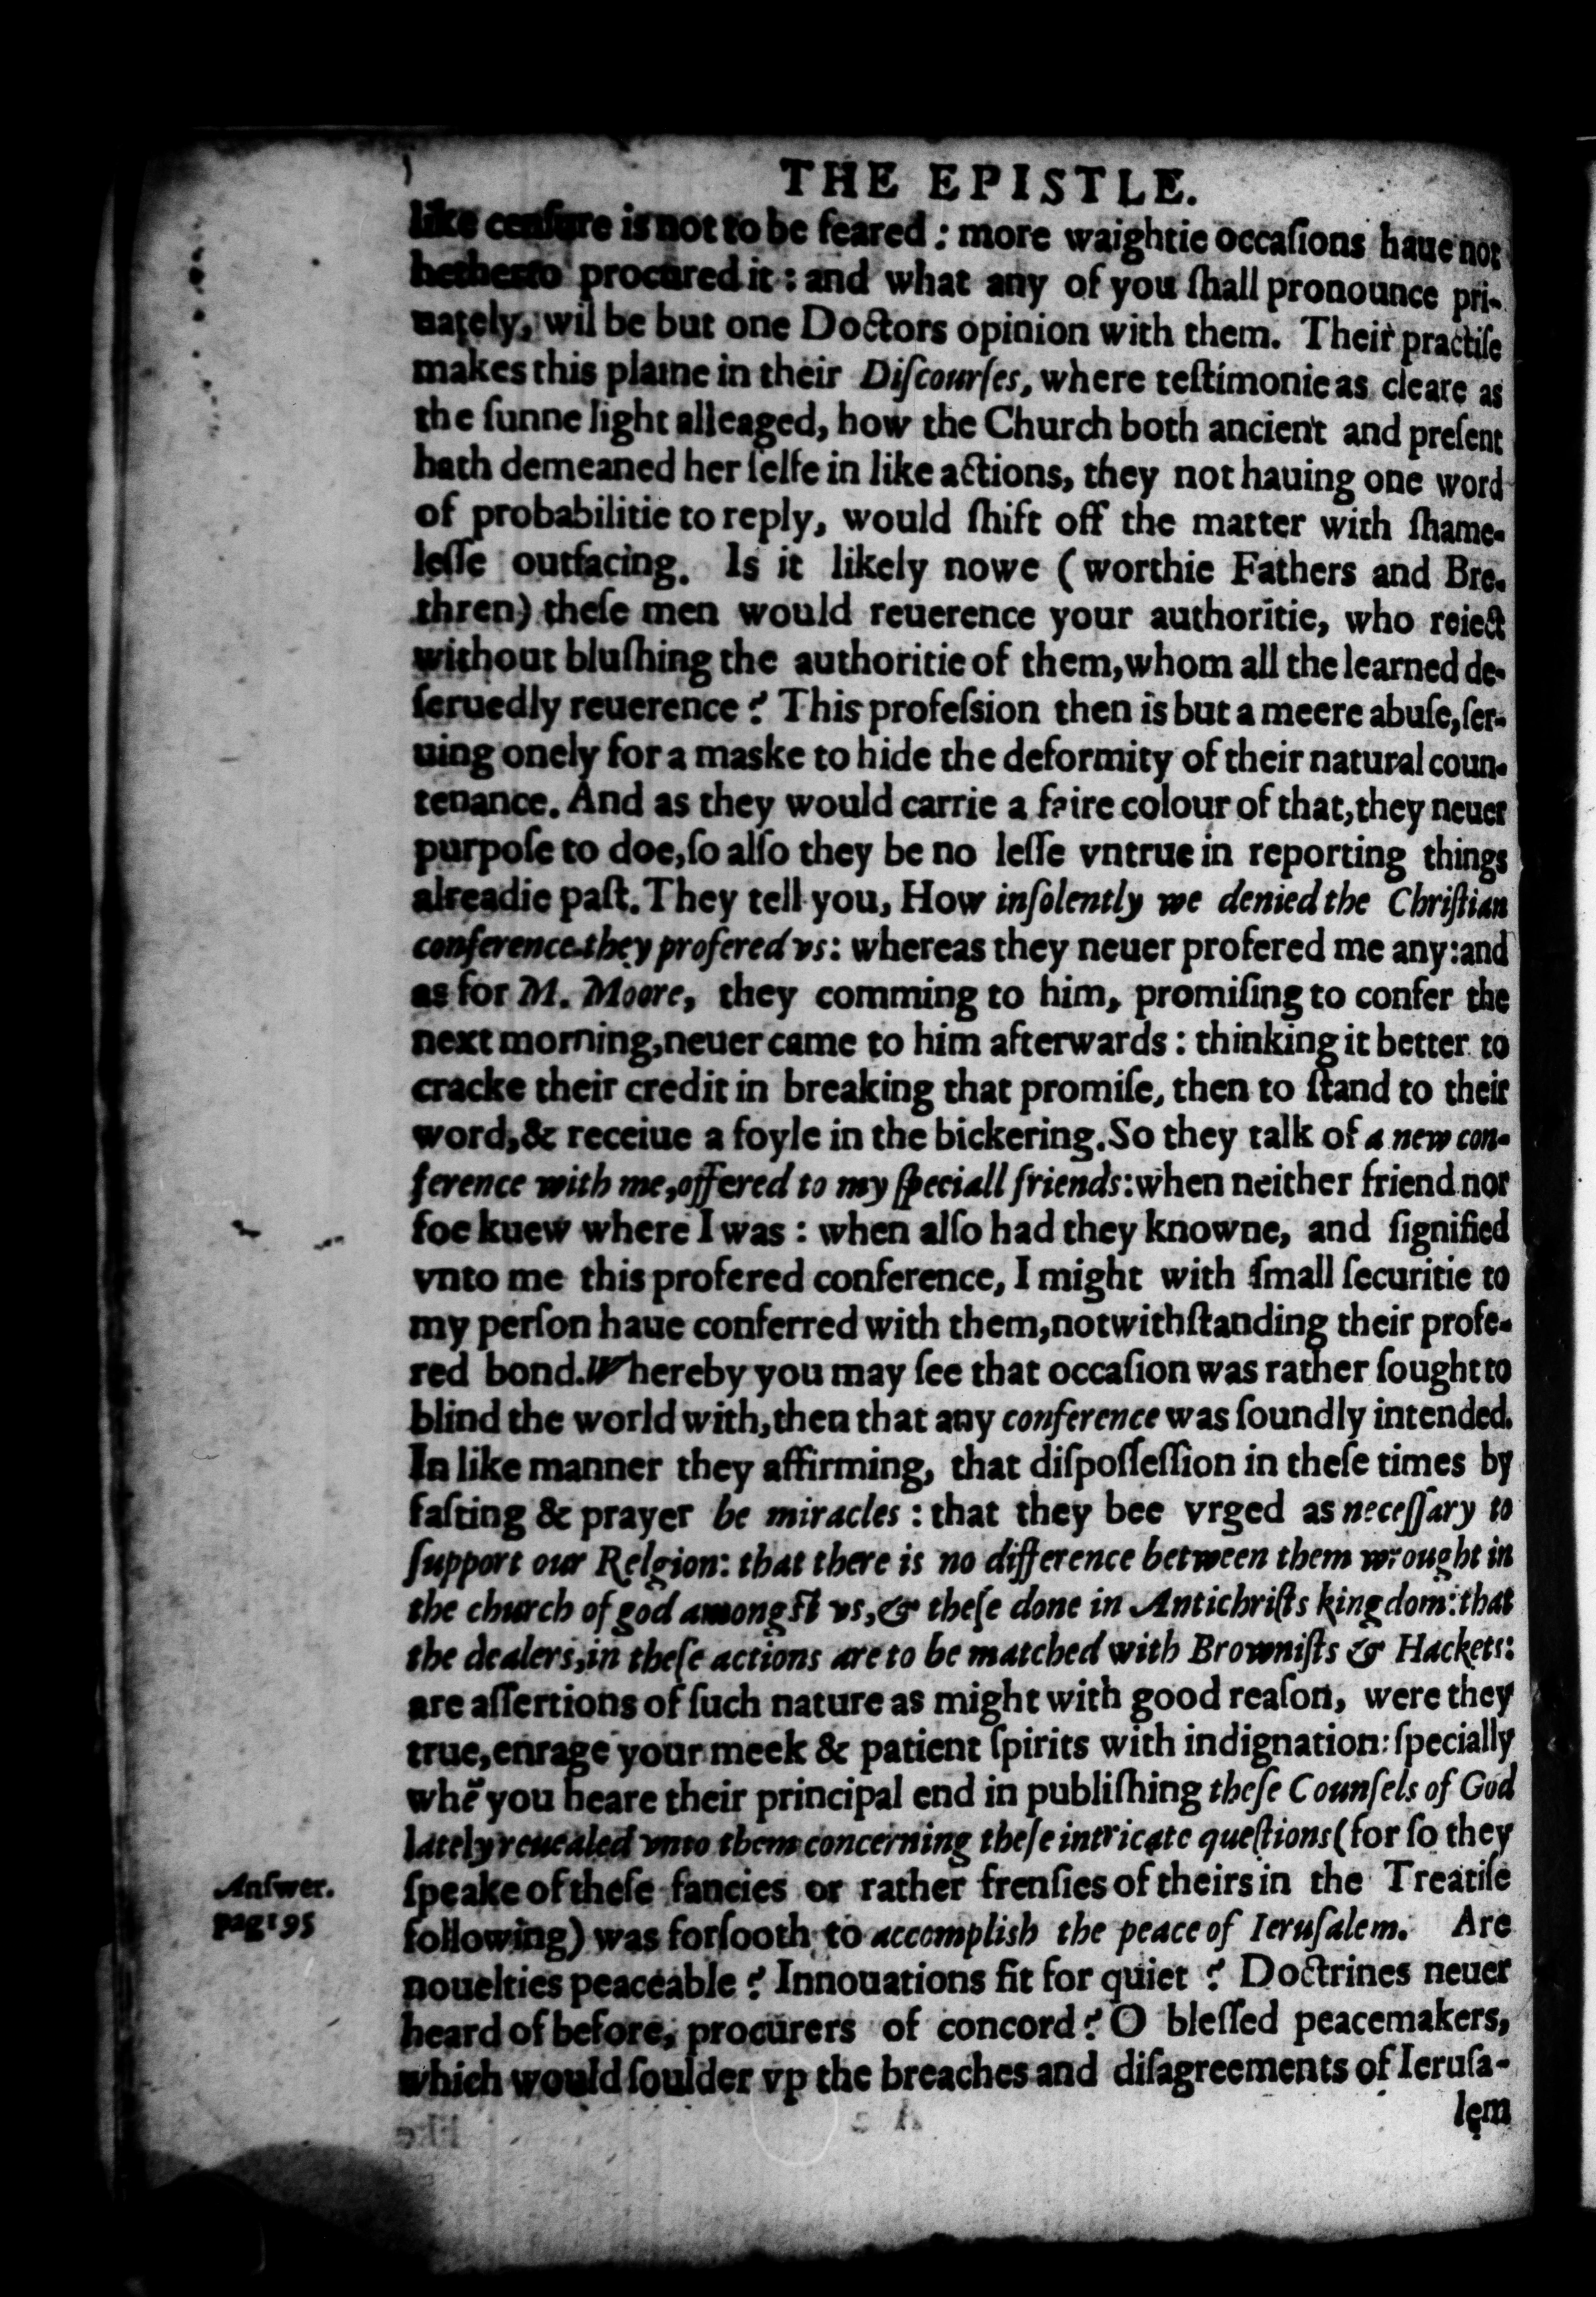 THE EPISTLE.
like censure is not to be feared : more waightie occaſions haue not
hetherto procured it : and what any of you ſhall pronounce pri-
uately, wil be but one Doctors opinion with them. Their practiſe
makes this plaine in their Diſcourſes, where teſtimonie as cleare as
the ſunne light alleaged, how the Church both ancient and preſent
hath demeaned her ſelfe in like actions, they not hauing one word
of probabilitie to reply, would ſhift off the matter with ſhame-
leſſe outfacing. Is it likely nowe (worthie Fathers and Bre-
thren) theſe men would reuerence your authoritie, who reiect
without bluſhing the authoritie of them, whom all the learned de-
ſeruedly reuerence ? This profeſsion then is but a meere abuſe, ſer-
uing onely for a maske to hide the deformity of their natural coun-
tenance. And as they would carrie a faire colour of that, they neuer
purpoſe to doe, ſo alſo they be no leſſe vntrue in reporting things
alreadie paſt. They tell you, How inſolently we denied the Chriſtian
conference they profered vs: whereas they neuer profered me any: and
as for M. Moore, they comming to him, promiſing to confer the
next morning, neuer came to him afterwards : thinking it better to
cracke their credit in breaking that promiſe, then to ſtand to their
word, & receiue a foyle in the bickering. So they talk of a new con-
ference with me, offered to my ſpeciall friends: when neither friend nor
foe kuew where I was : when alſo had they knowne, and ſignified
vnto me this profered conference, I might with ſmall ſecuritie to
my perſon haue conferred with them, notwithſtanding their profe-
red bond. Whereby you may ſee that occaſion was rather ſought to
blind the world with, then that any conference was ſoundly intended.
In like manner they affirming, that diſpoſſeſſion in theſe times by
faſting & prayer be miracles : that they bee vrged as neceſſary to
ſupport our Relgion: that there is no difference between them wrought in
the church of god amongſt vs, & theſe done in Antichriſts kingdom: that
the dealers, in theſe actions are to be matched with Browniſts & Hackets:
are aſſertions of ſuch nature as might with good reaſon, were they
true, enrage your meek & patient ſpirits with indignation: ſpecially
whē you heare their principal end in publiſhing theſe Counſels of God
lately reuealed vnto them concerning theſe intricate queſtions (for ſo they
ſpeake of theſe fancies or rather frenſies of theirs in the Treatiſe
following) was forſooth to accomplish the peace of Ieruſalem. Are
nouelties peaceable ? Innouations fit for quiet ? Doctrines neuer
heard of before, procurers of concord ? O bleſſed peacemakers,
which would ſoulder vp the breaches and diſagreements of Ieruſa-
lem
Anſwer.
pag 195